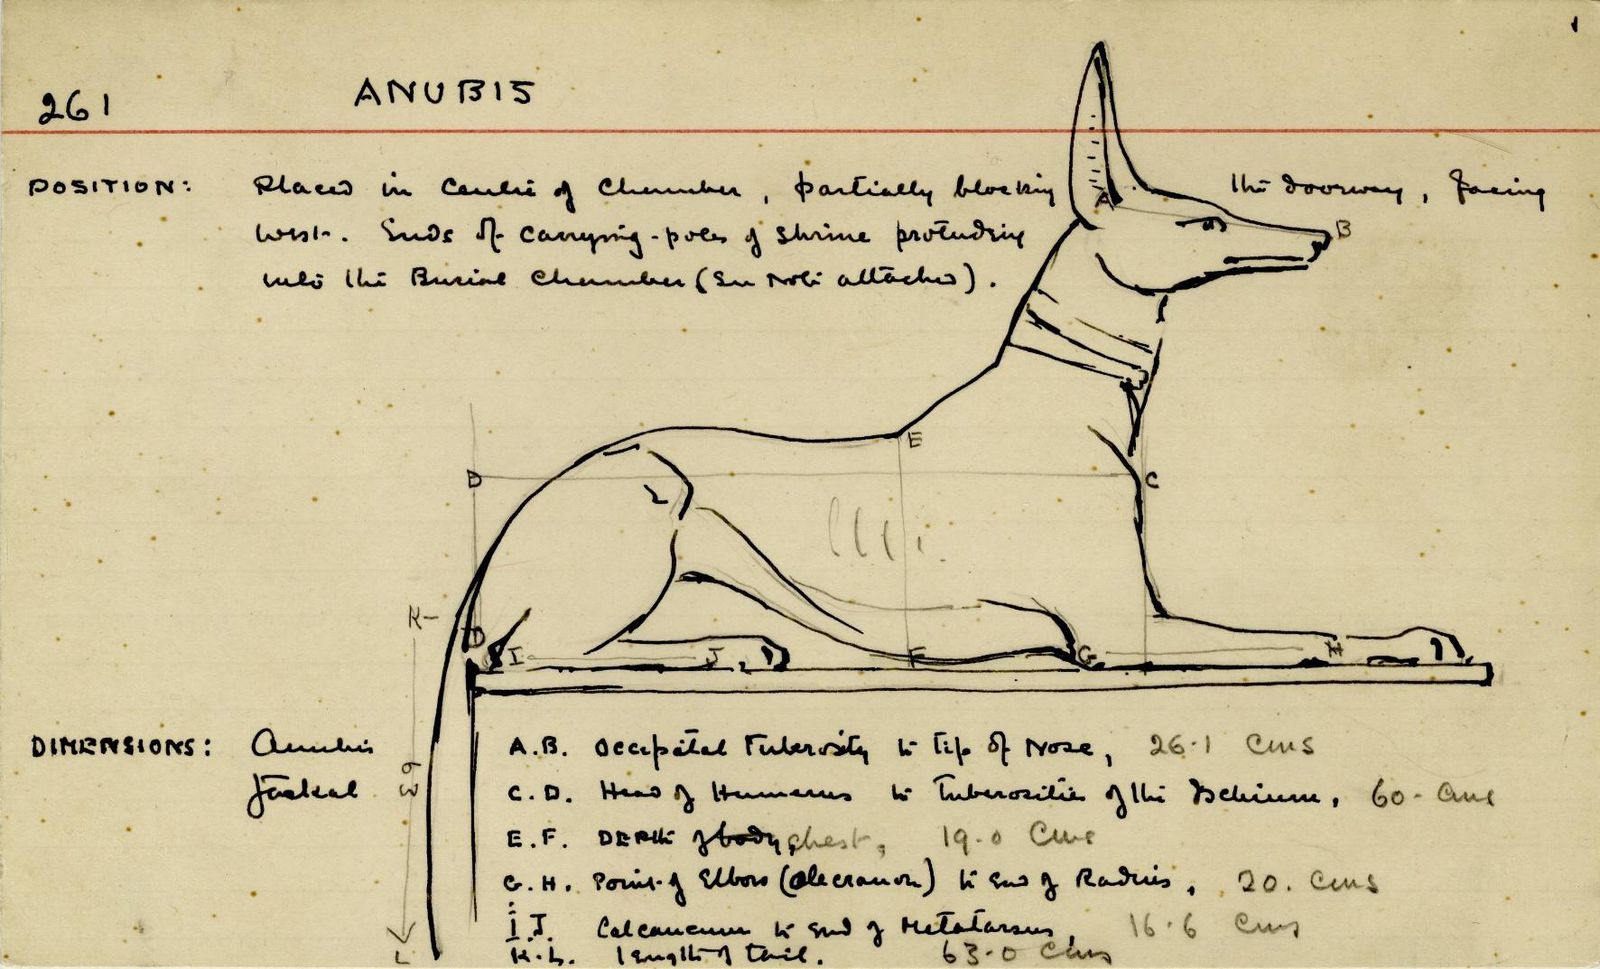 1
261 ANUBIS
POSITION: Placed in Centre of Chamber, partially blocking the doorway, facing
west. Ends of carrying-poles of shrine protruding
into the Burial Chamber (See Note attached).
A
B
E
D
C
K
D
I J F G H
63
L
DIMENSIONS: Anubis A.B. Occipital Tuberosity to tip of Nose, 26.1 cms
Jackal C.D. Head of Humerus to Tuberosities of the Ischium, 60. cms
E.F. DEPth of body chest, 19.0 cms
G.H. Point of Elbow (Olecranon) to end of Radius, 20. cms
I.J. Calcaneum to end of Metatarsus, 16.6 cms
K.L. length of tail. 63.0 cms